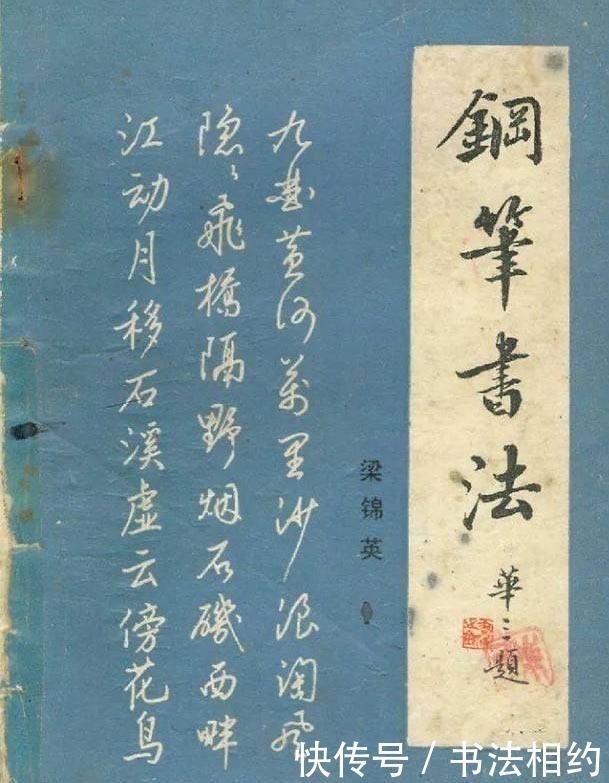 鋼筆書法
華三題
梁锦英
九曲黄河萬里沙浪淘风
隐〻飛橋隔野烟石磯西畔
江动月移石溪虚云傍花鸟
快传号 / 书法相约